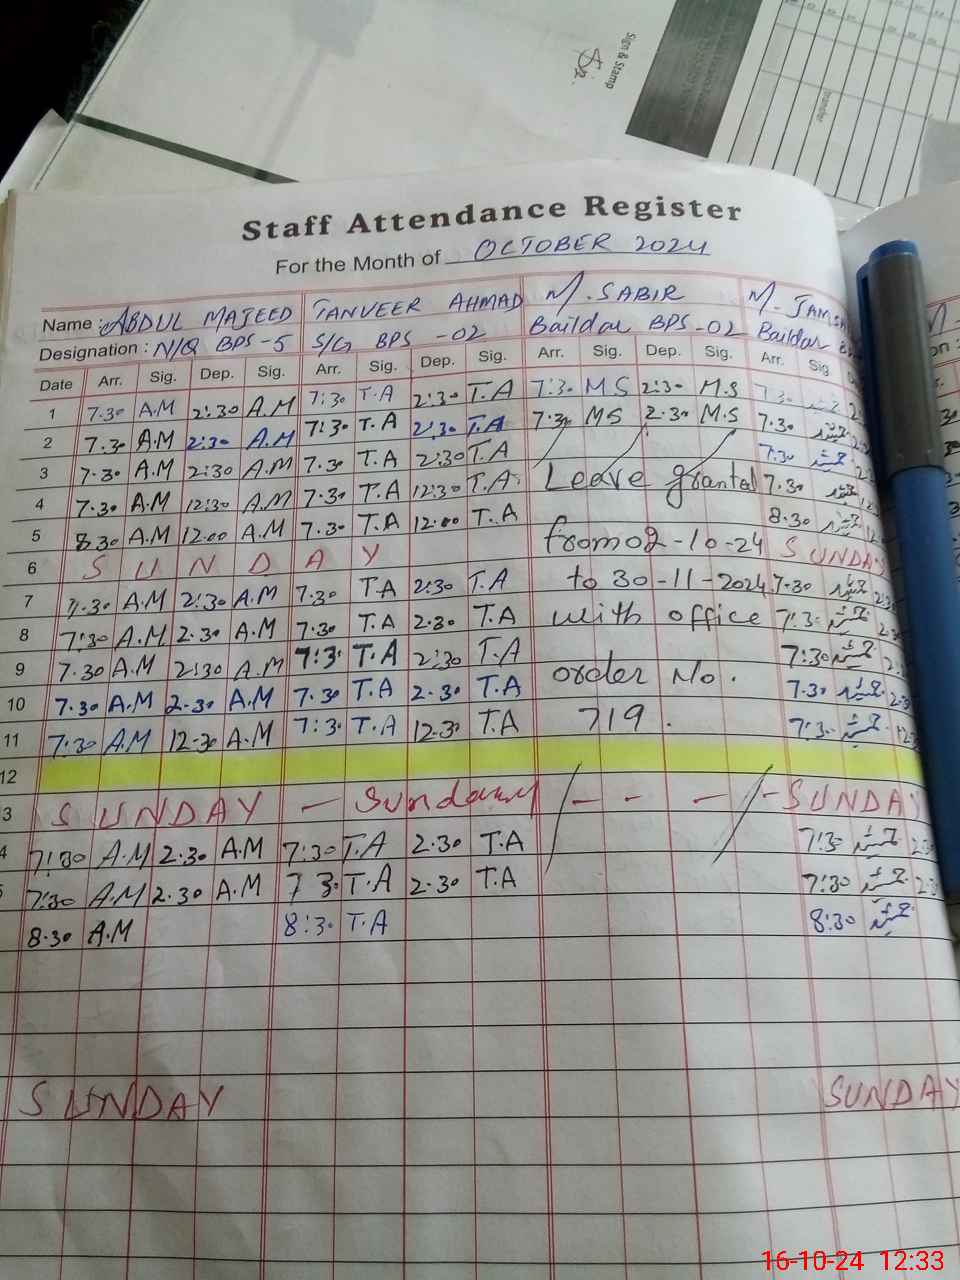 Sign & Stamp
Staff Attendance Register
For the Month of OCTOBER 2024
Name : ABDUL MAJEED TANVEER AHMAD M. SABIR M. JAMSH
Designation : N/Q BPS-5 S/G BPS -02 Baildar BPS-02 Baildar
Date Arr. Sig. Dep. Sig. Arr. Sig. Dep. Sig. Arr. Sig. Dep. Sig. Arr. Sig
1 7.30 A.M 2:30 A.M 7:30 T.A 2:30 T.A 7:30 M S 2:30 M.S 7.30
2 7.30 A.M 2:30 A.M 7:30 T.A 2:30 T.A 7:30 M S 2.30 M.S 7.30
3 7.30 A.M 2:30 A.M 7.30 T.A 2:30 T.A 7:30
4 7.30 A.M 12:30 A.M 7.30 T.A 12:30 T.A Leave granted 7.30
5 8.30 A.M 12.00 A.M 7.30 T.A 12.00 T.A 8.30
6 S U N D A Y from 02-10-24 SUNDAY
7 7.30 A.M 2:30 A.M 7:30 T.A 2:30 T.A to 30-11-2024 7.30
8 7:30 A.M 2.30 A.M 7.30 T.A 2.30 T.A with office 7:30
9 7.30 A.M 2:30 A.M 7:30 T.A 2:30 T.A 7:30
10 7.30 A.M 2.30 A.M 7.30 T.A 2.30 T.A order No. 7.30
11 7:30 A.M 12.30 A.M 7:30 T.A 12.30 T.A 719. 7:30
12
3 SUNDAY — Sunday - - - SUNDAY
4 7:30 A.M 2.30 A.M 7:30 T.A 2.30 T.A 7:30
5 7:30 A.M 2.30 A.M 7 3. T.A 2.30 T.A 7:30
8.30 A.M 8:30 T.A 8:30
SUNDAY SUNDAY
16-10-24 12:33